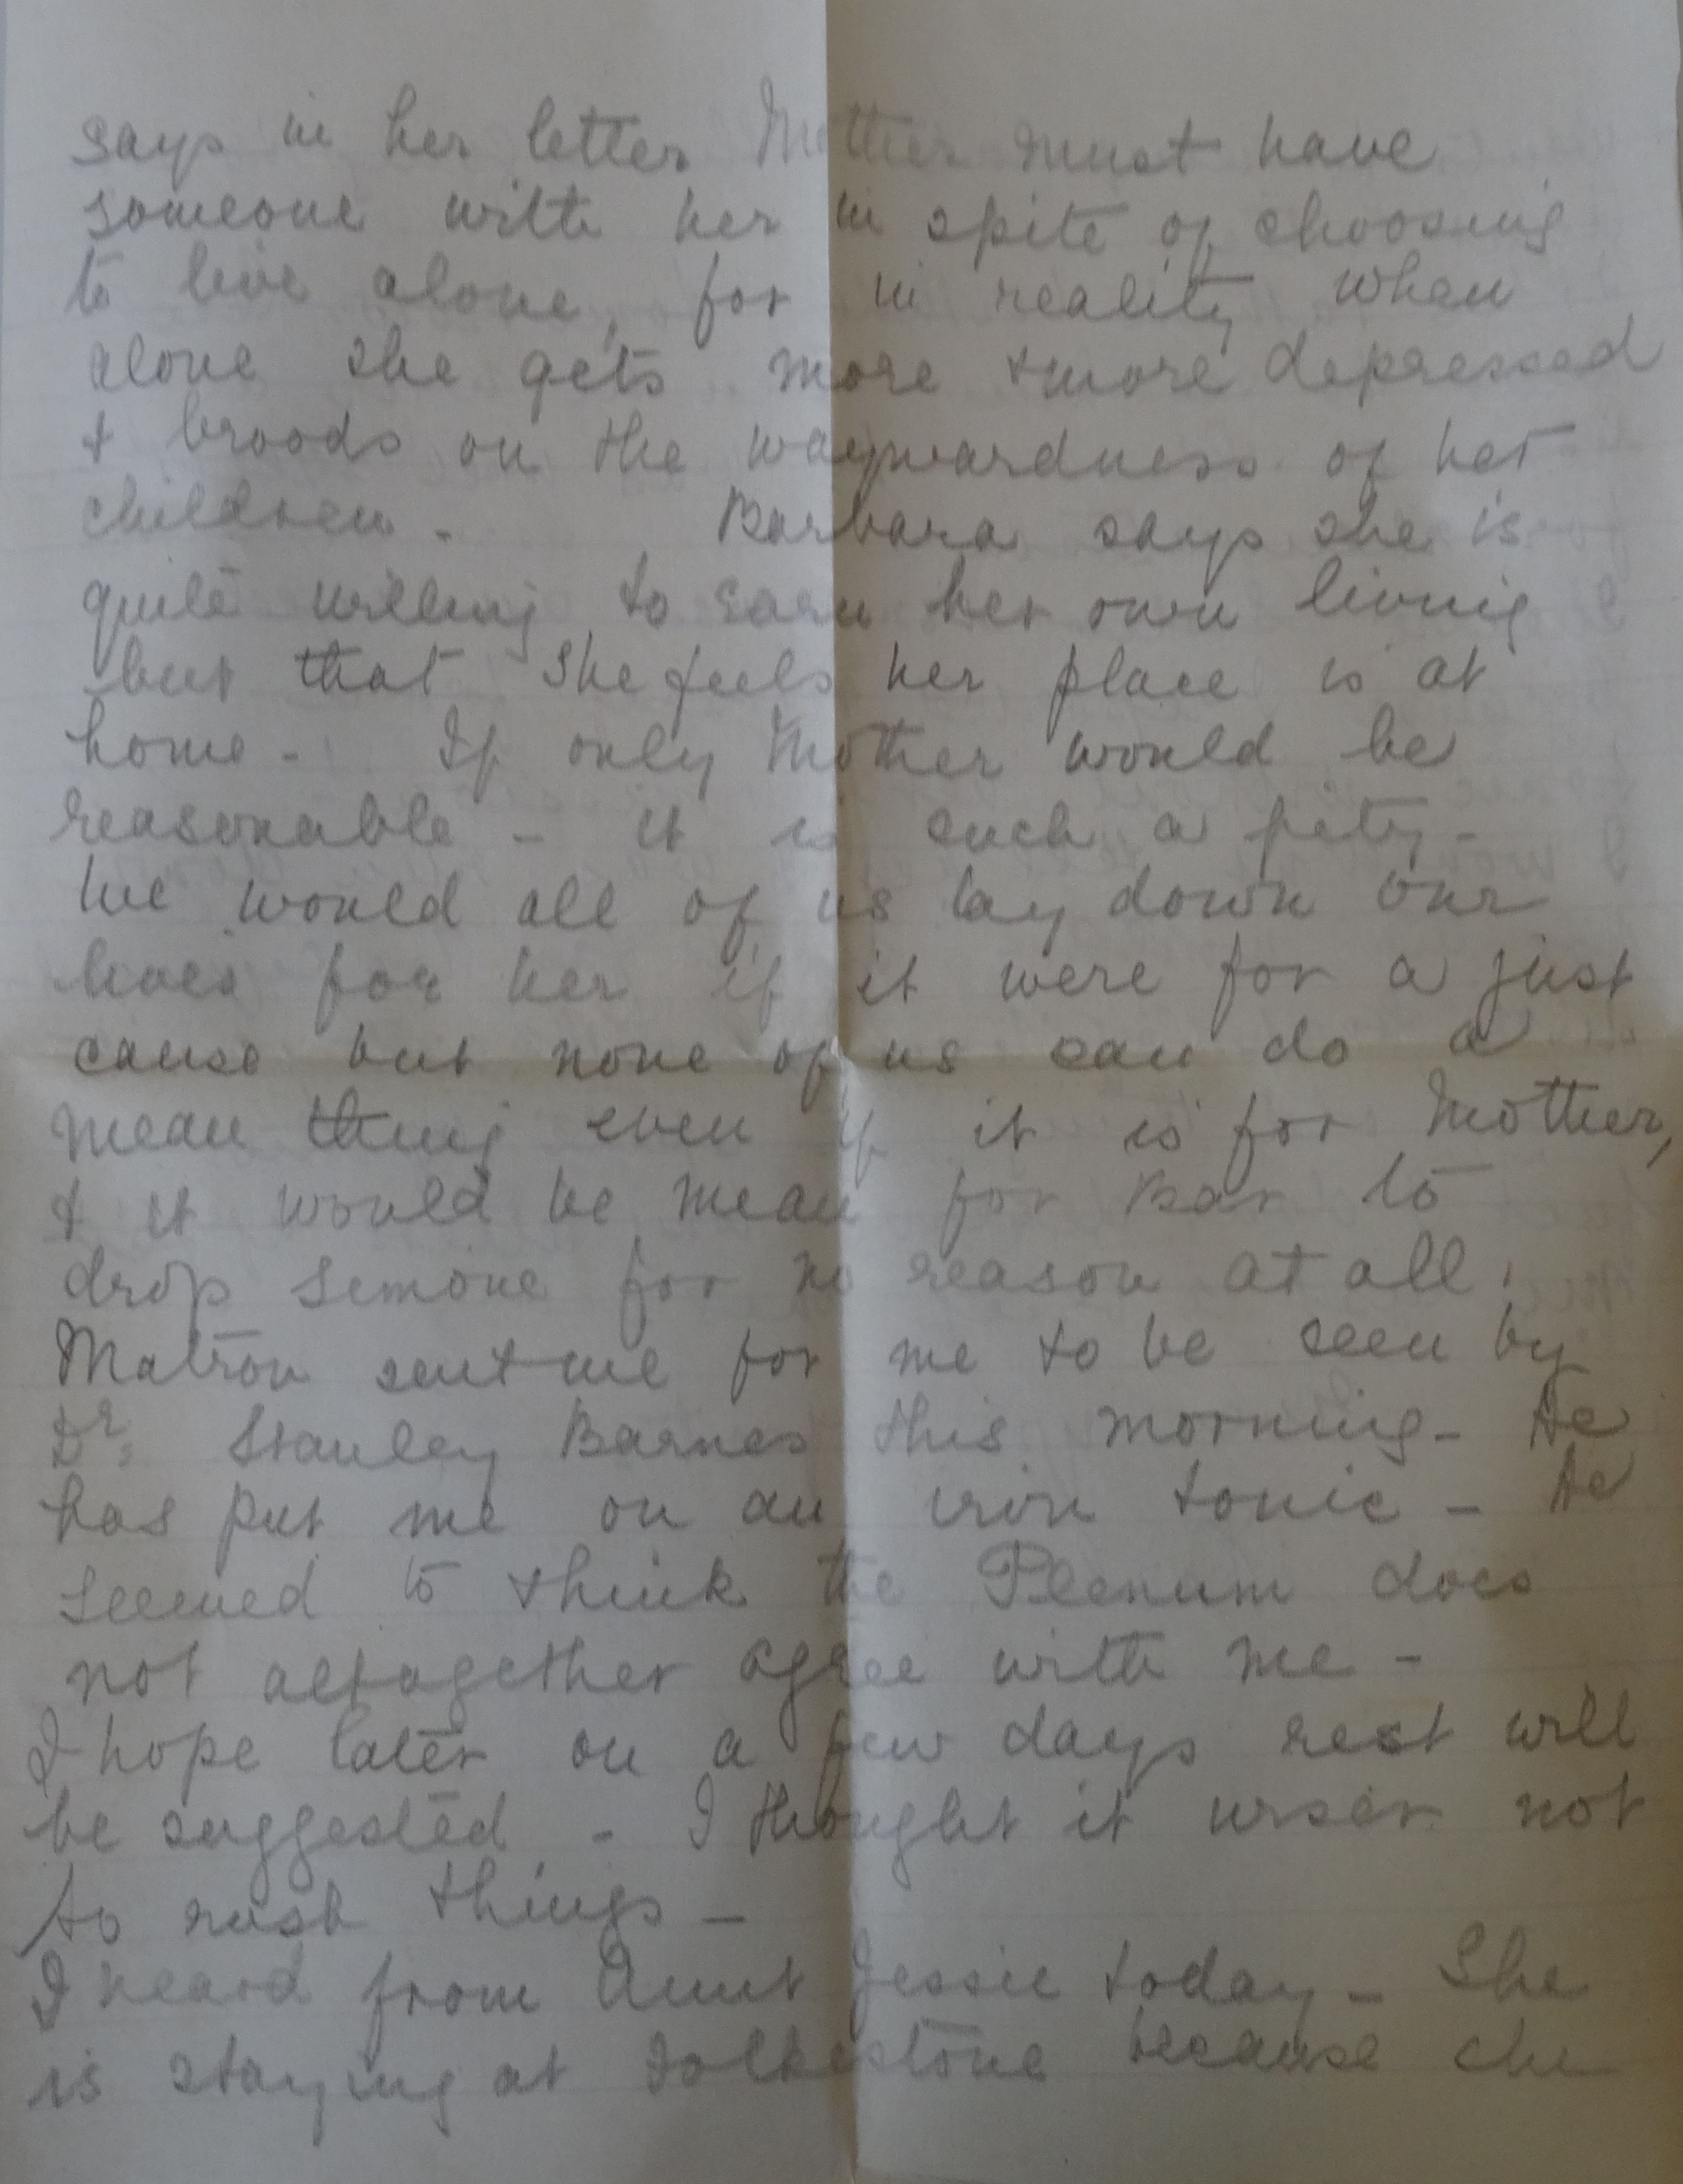 says in her letter Mother must have
someone with her in spite of choosing
to live alone, for in reality when
alone she gets more & more depressed
& broods on the waywardness of her
children - Barbara says she is
quite willing to earn her own living
but that she feels her place is at
home - If only Mother would be
reasonable - it is such a pity -
We would all of us lay down our
lives for her if it were for a just
cause but none of us can do a
mean thing even if it is for Mother,
& it would be mean for Bar to
drop Simone for no reason at all.
Matron sent me for me to be seen by
Dr. Stanley Barnes this morning - He
has put me on an iron tonic - He
seemed to think the Plenum does
not altogether agree with me -
I hope later on a few days rest will
be suggested - I thought it wiser not
to rush things -
I heard from Aunt Jessie today - She
is staying at Folkestone because she